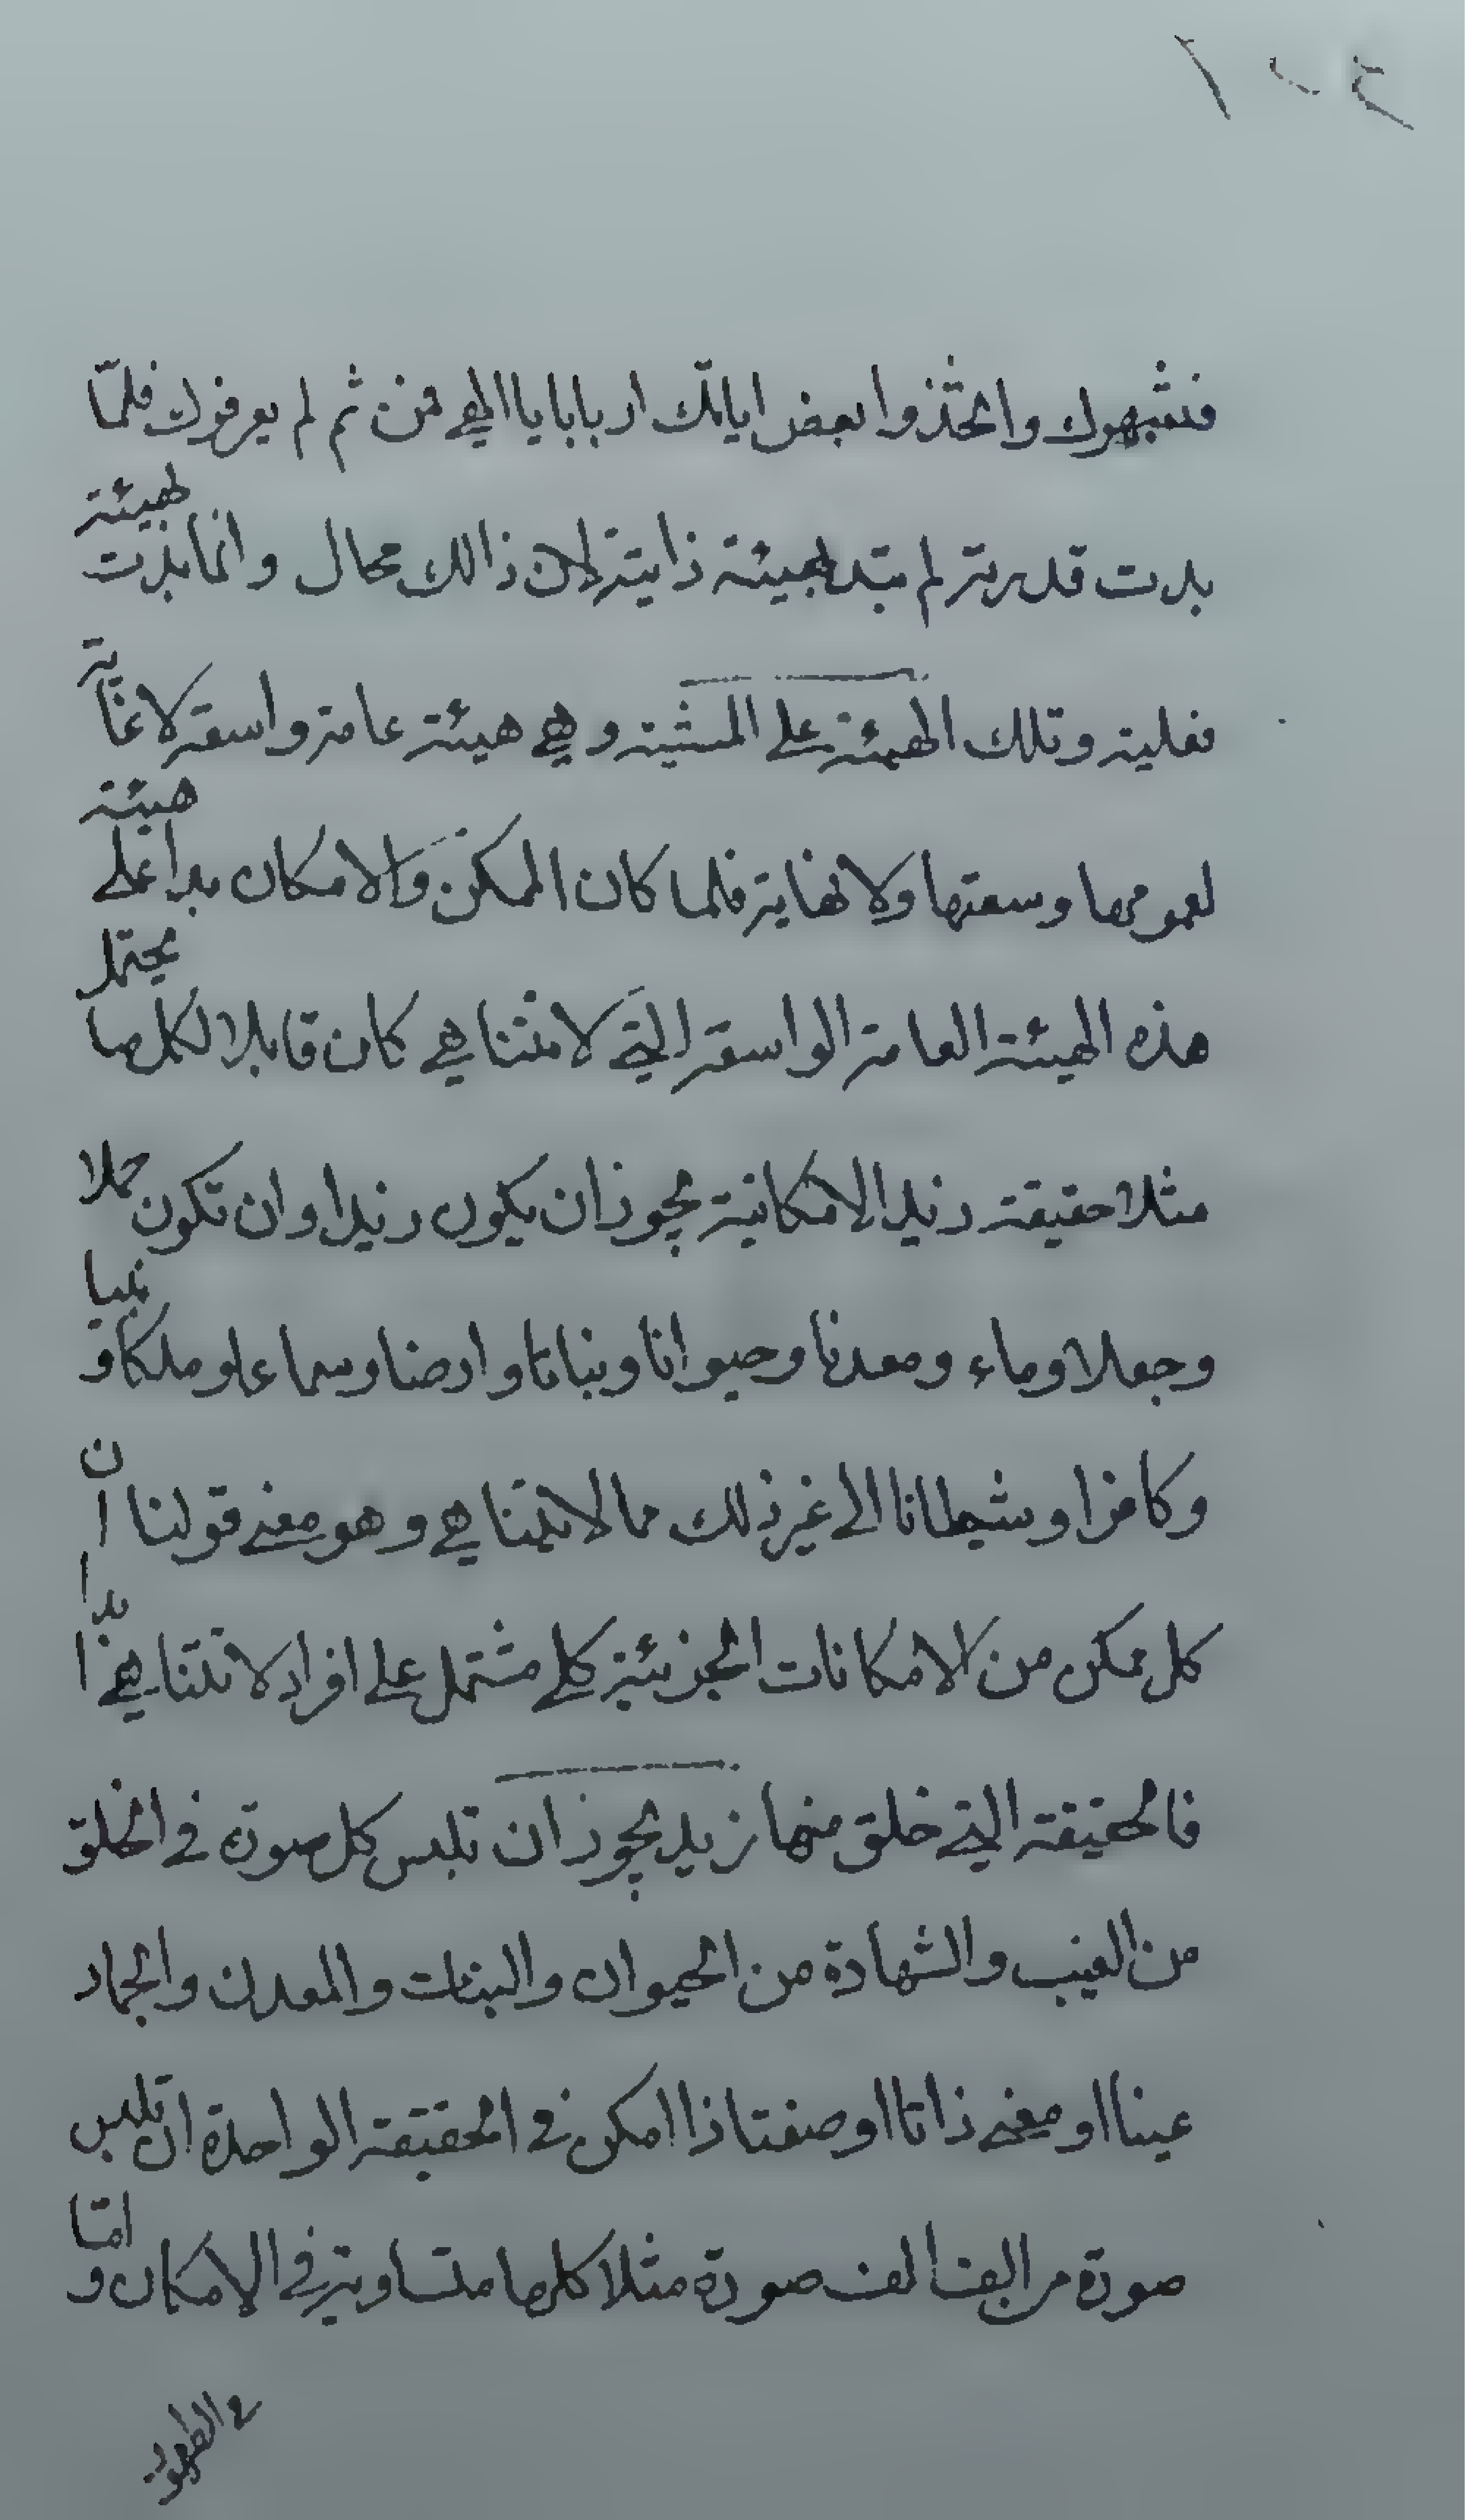 فشبهوك واتخذوا بعض اياتك اربابا يا الهي فمن ثم لم يعرفوك فلمّا
بدت قدرته لم تبد بهيئة ذاتية لان ذالك محال وانما بدت لهيئة
فعلية وتلك الهيئة على المشية وهي هيئة عامة واسعة لا غاية
لعمومها وسعتها ولا نهاية فلما كان الممكن والامكان بدأ على هيئة
هذه الهيئة العامة الواسعة التي لا تتناهي كان قابلا لكل ما يحتمل
مثلا حقيقة زيد الامكانية يجوز ان يكون زيدا وان تكون جملا
وجعلا وماء ومعدنا وحيوانا ونباتا وارضا وسماء وملكا و نبيا
وكافرا وشيطانا الى غير ذلك مما لا يتناهي وهو معنى قولنا ان
كل ممكن من الامكانات الجزئية كلي مشتمل على افراد لا تتناهي ابدا
فالحقيقة التي خلق منها زيد يجوز ان تلبس كل صورة في الخلق
من الغيب والشهادة من الحيوان والنبات والمعدن والجماد
عينا او معنى ذاتا او صفتا ذا امكن في الحقيقة الواحدة ان تلبس
صورة من الف الف صورة مثلا كلها متساوية في الامكان و امّا